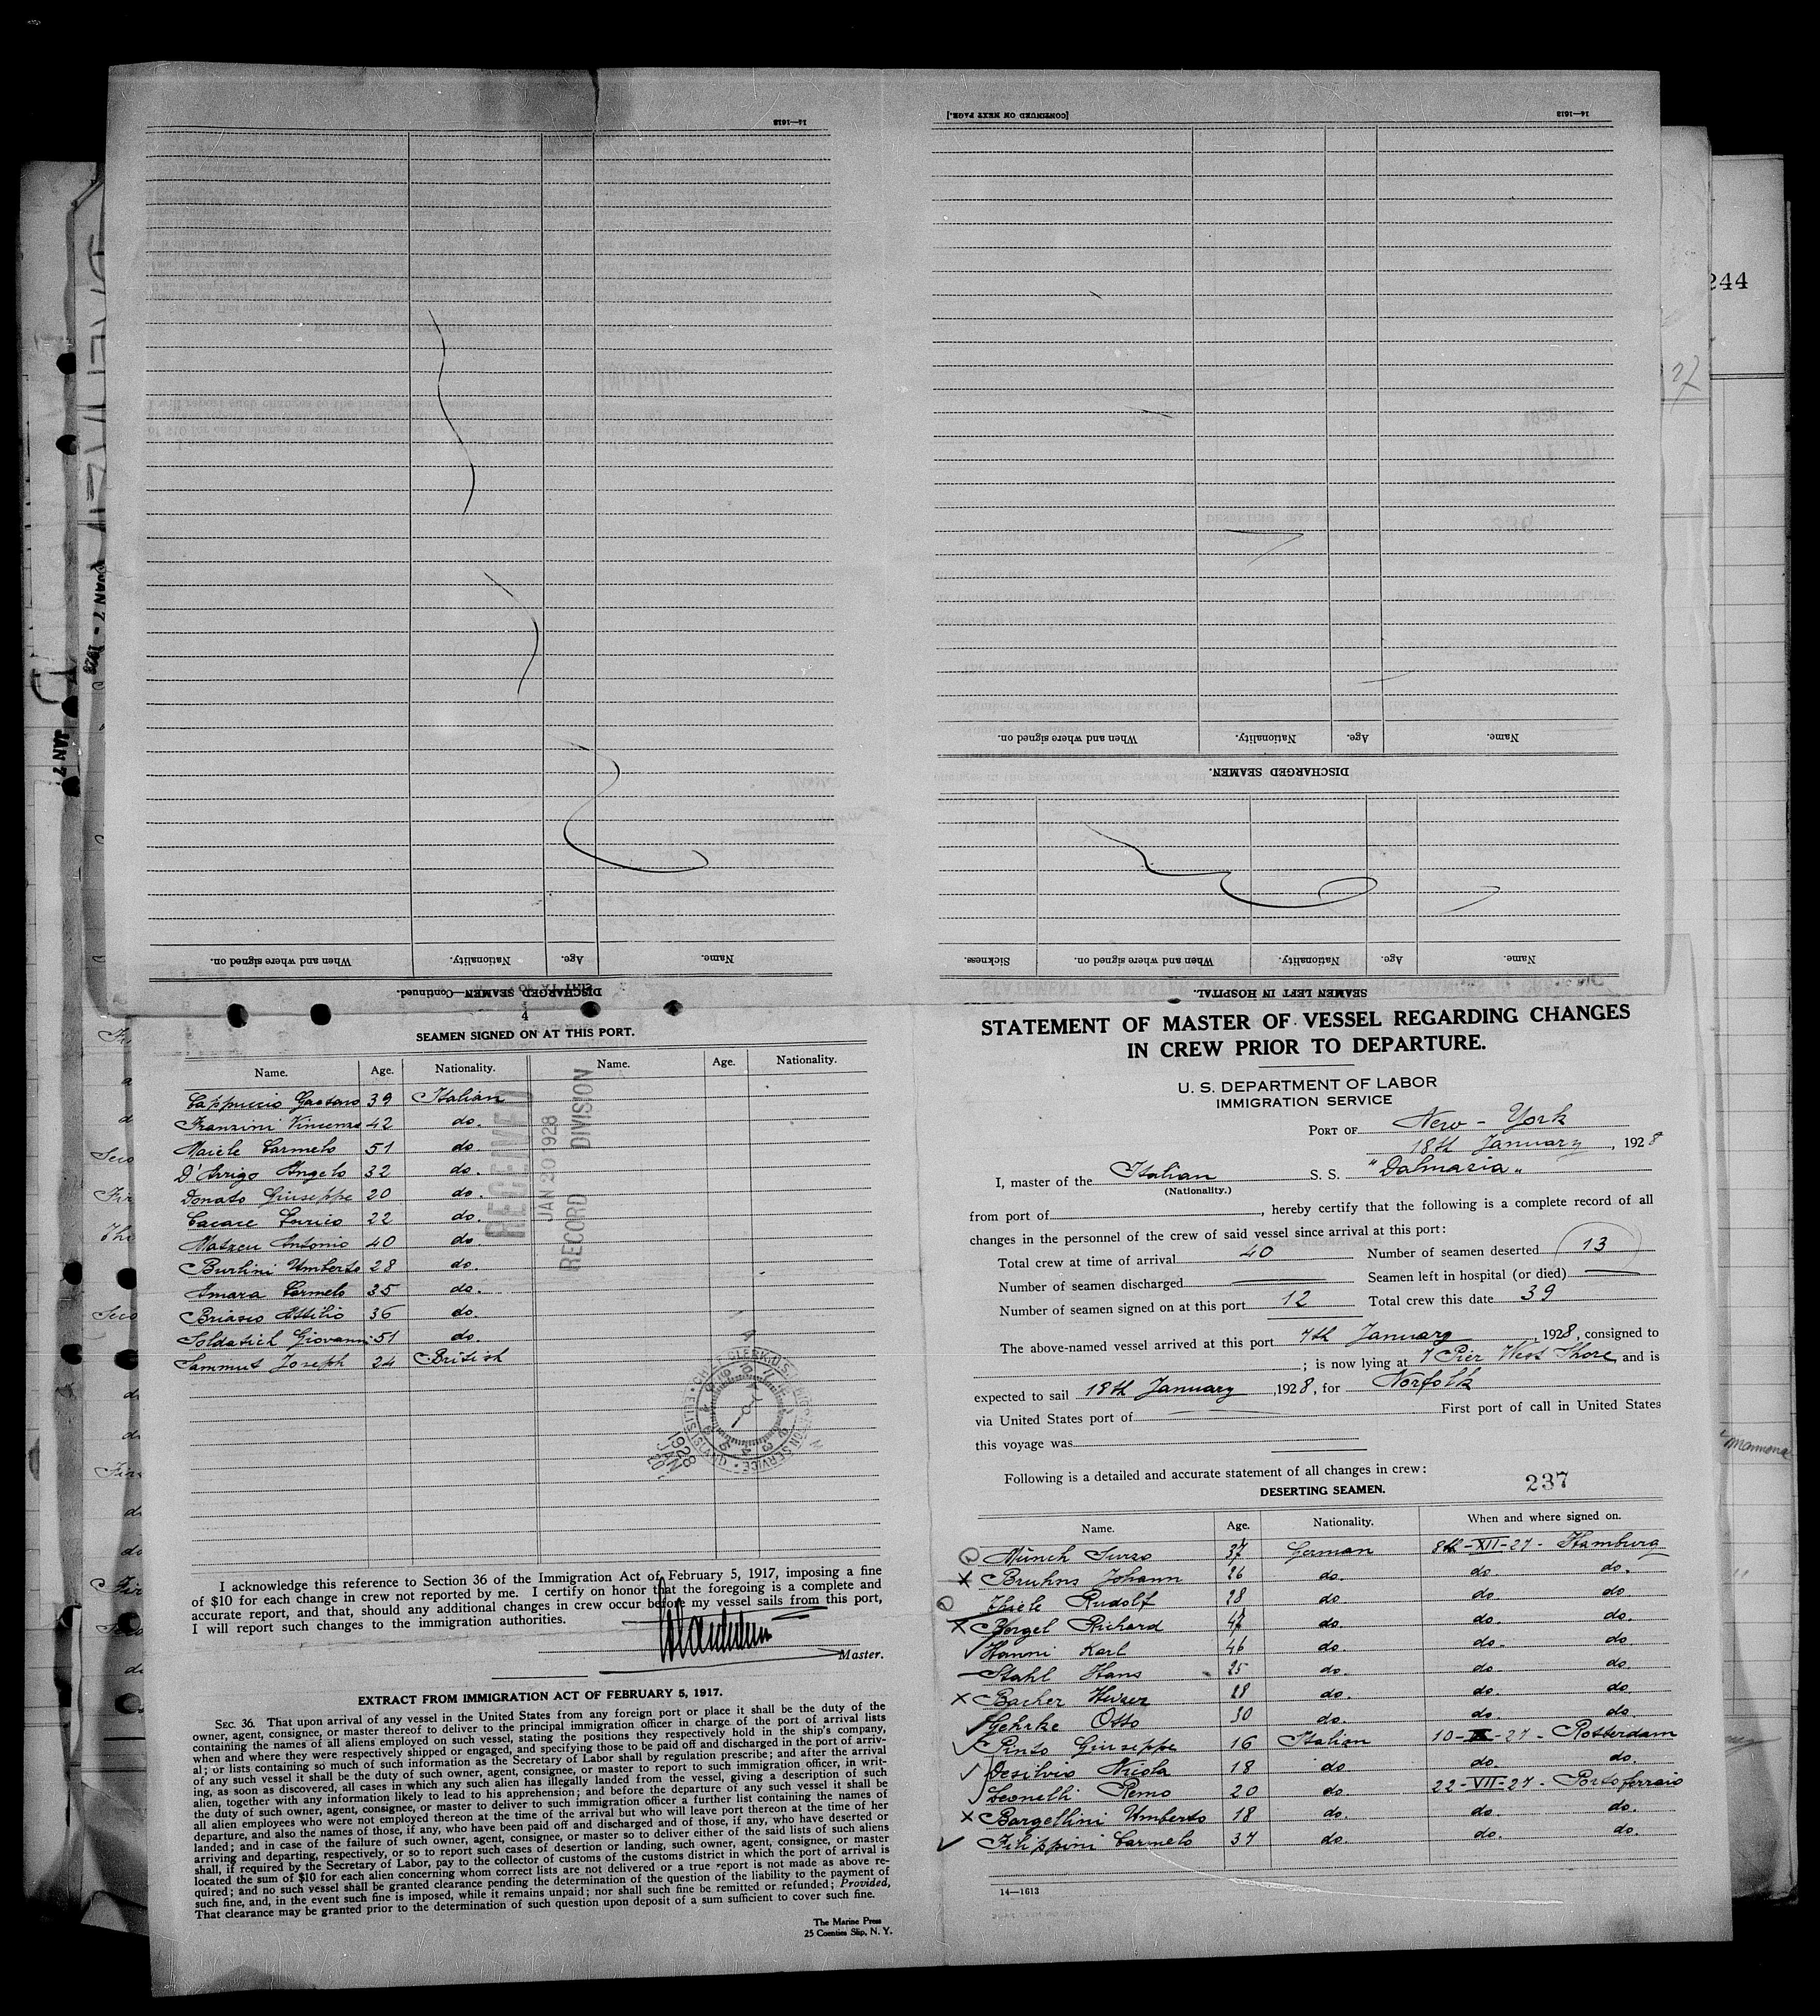 14—1613
[CONTINUED ON NEXT PAGE.]
14—1613
244
When and where signed on.
Nationality.
Age.
Name.
DISCHARGED SEAMEN—Continued.
When and where signed on.
Nationality.
Age.
Name.
DISCHARGED SEAMEN.
Sickness.
When and where signed on.
Nationality.
Age.
Name.
SEAMEN LEFT IN HOSPITAL.
JAN 7 - 1928
JAN 7
4
SEAMEN SIGNED ON AT THIS PORT.
Name. Age. Nationality. Name. Age. Nationality.
Cappuccio Gaetano 39 Italian
Franzini Vincenzo 42 do.
Maiele Carmelo 51 do.
D'Arrigo Angelo 32 do.
Donato Giuseppe 20 do.
Cacace Enrico 22 do.
Matzeu Antonio 40 do.
Burlini Umberto 28 do.
Amara Carmelo 35 do.
Briasco Attilio 36 do.
Soldatich Giovanni 51 do.
Sammut Joseph 24 British
RECEIVED
JAN 20 1928
RECORD DIVISION
1928 JAN
I acknowledge this reference to Section 36 of the Immigration Act of February 5, 1917, imposing a fine
of $10 for each change in crew not reported by me. I certify on honor that the foregoing is a complete and
accurate report, and that, should any additional changes in crew occur before my vessel sails from this port,
I will report such changes to the immigration authorities.
Master.
EXTRACT FROM IMMIGRATION ACT OF FEBRUARY 5, 1917.
SEC. 36. That upon arrival of any vessel in the United States from any foreign port or place it shall be the duty of the
owner, agent, consignee, or master thereof to deliver to the principal immigration officer in charge of the port of arrival lists
containing the names of all aliens employed on such vessel, stating the positions they respectively hold in the ship's company,
when and where they were respectively shipped or engaged, and specifying those to be paid off and discharged in the port of arriv-
al; or lists containing so much of such information as the Secretary of Labor shall by regulation prescribe; and after the arrival
of any such vessel it shall be the duty of such owner, agent, consignee, or master to report to such immigration officer, in writ-
ing, as soon as discovered, all cases in which any such alien has illegally landed from the vessel, giving a description of such
alien, together with any information likely to lead to his apprehension; and before the departure of any such vessel it shall be
the duty of such owner, agent, consignee, or master to deliver to such immigration officer a further list containing the names of
all alien employees who were not employed thereon at the time of the arrival but who will leave port thereon at the time of her
departure, and also the names of those, if any, who have been paid off and discharged and of those, if any, who have deserted or
landed; and in case of the failure of such owner, agent, consignee, or master so to deliver either of the said lists of such aliens
arriving and departing, respectively, or so to report such cases of desertion or landing, such owner, agent, consignee, or master
shall, if required by the Secretary of Labor, pay to the collector of customs of the customs district in which the port of arrival is
located the sum of $10 for each alien concerning whom correct lists are not delivered or a true report is not made as above re-
quired; and no such vessel shall be granted clearance pending the determination of the question of the liability to the payment of
such fine, and, in the event such fine is imposed, while it remains unpaid; nor shall such fine be remitted or refunded; Provided,
That clearance may be granted prior to the determination of such question upon deposit of a sum sufficient to cover such fine.
The Marine Press
25 Coenties Slip, N. Y.
STATEMENT OF MASTER OF VESSEL REGARDING CHANGES
IN CREW PRIOR TO DEPARTURE.
U. S. DEPARTMENT OF LABOR
IMMIGRATION SERVICE
PORT OF New-York
18th January, 1928
I, master of the Italian S. S. "Dalmazia"
(Nationality.)
from port of , hereby certify that the following is a complete record of all
changes in the personnel of the crew of said vessel since arrival at this port:
Total crew at time of arrival 40 Number of seamen deserted 13
Number of seamen discharged Seamen left in hospital (or died)
Number of seamen signed on at this port 12 Total crew this date 39
The above-named vessel arrived at this port 7th January, 1928, consigned to
; is now lying at 7 Pier West Shore and is
expected to sail 18th January, 1928, for Norfolk
via United States port of First port of call in United States
this voyage was
Following is a detailed and accurate statement of all changes in crew:
237
DESERTING SEAMEN.
Name. Age. Nationality. When and where signed on.
Münch 37 German 8th-XII-27- Hamburg
x Bruhns Johann 26 do. do. do.
Thiele Rudolf 28 do do. do
x Borgel Richard 47 do. do. do.
Hanni Karl 46 do. do. do
Stahl Hans 25 do. do. do.
x Bacher 28 do. do. do.
Gehrke Otto 30 do. do. do.
Pinto Giuseppe 16 Italian 10-X-27- Rotterdam
Desilvio Nicola 18 do do. do.
Leonelli Remo 20 do. 22-VII-27- Portoferraio
x Bargellini Umberto 18 do. do. do.
Filippini Carmelo 37 do. do. do.
14—1613